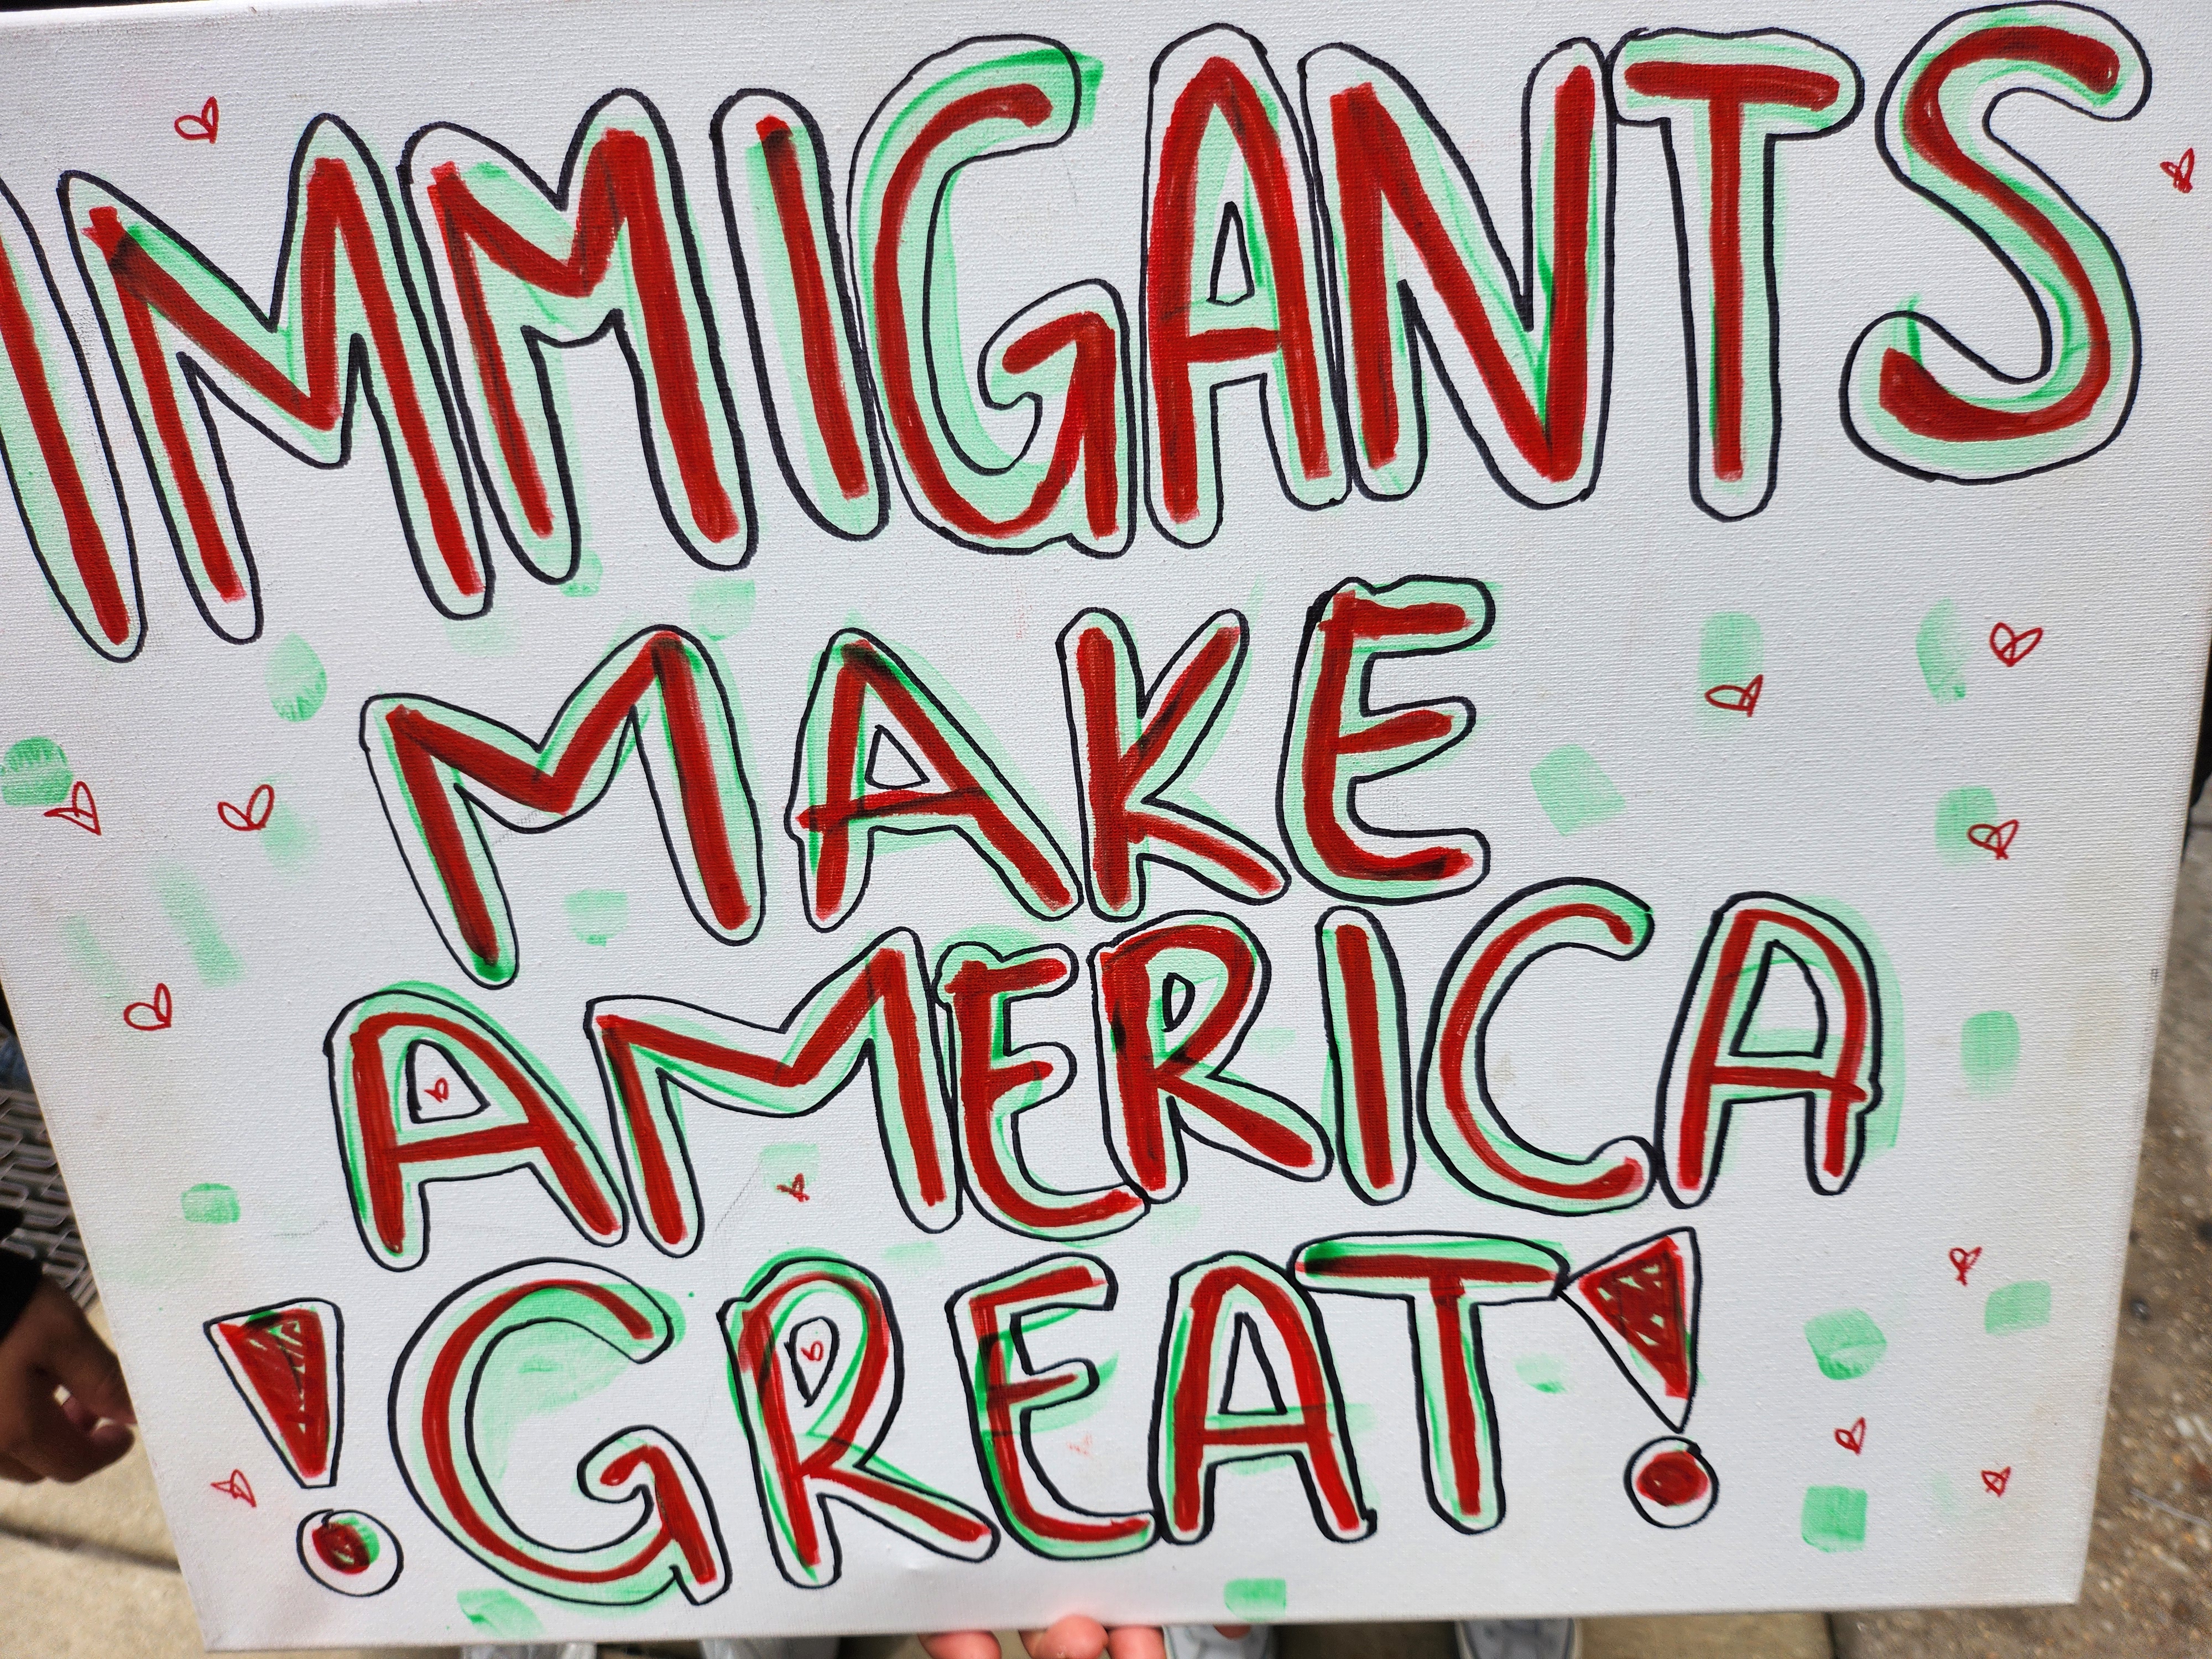 IMMIGANTS
MAKE
AMERICA
!GREAT!